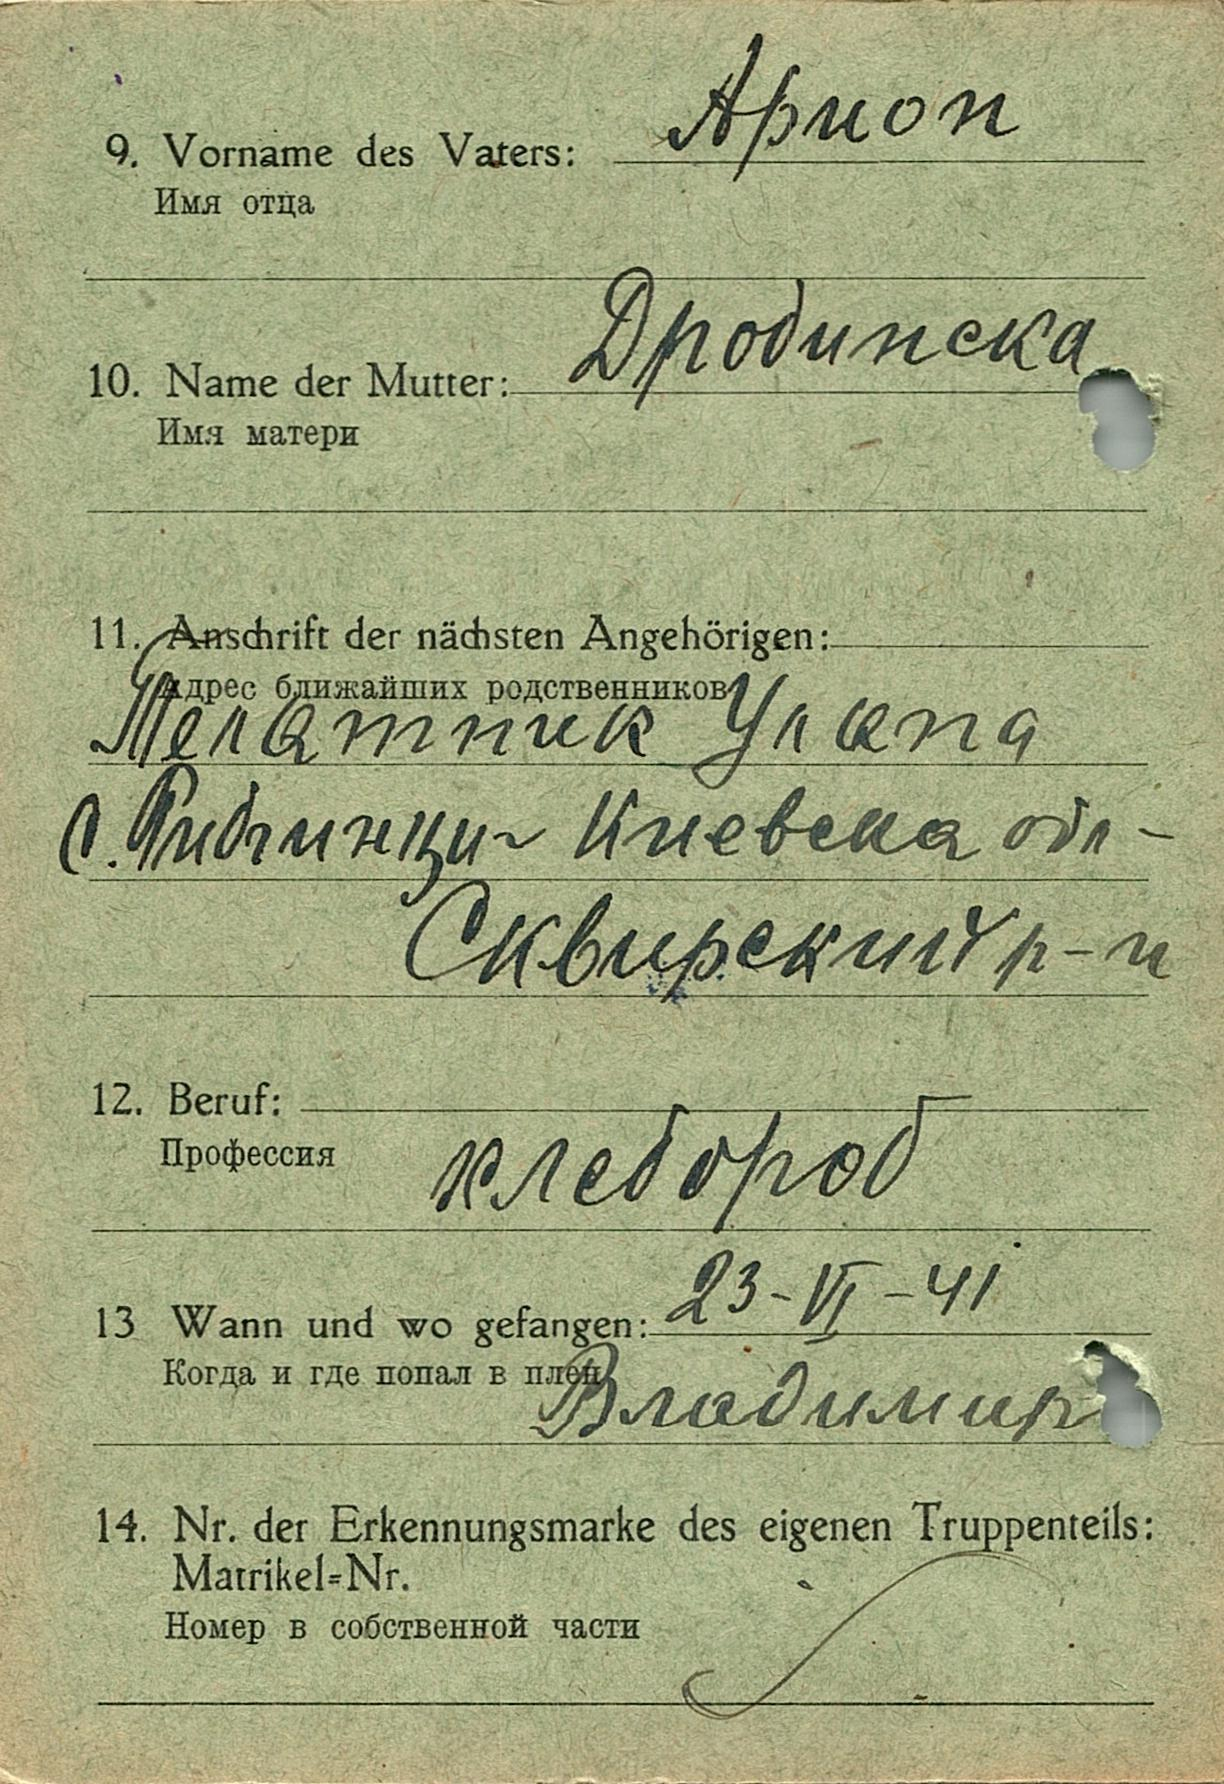 9. Vorname des Vaters: Арион
Имя отца
10. Name der Mutter: Дродинска
Имя матери
11. Anschrift der nächsten Angehörigen:
Адрес ближайших родственников
Уляна
с. Киевска обл-
Сквирский р-н
12. Beruf:
Профессия хлебороб
13 Wann und wo gefangen: 23-VI-41
Когда и где попал в плен Владимир
14. Nr. der Erkennungsmarke des eigenen Truppenteils:
Matrikel=Nr.
Номер в собственной части